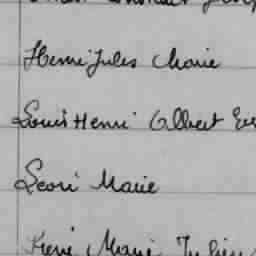 Henri Jules Marie
Louis Henri Albert
Léon Marie
René Marie Julien